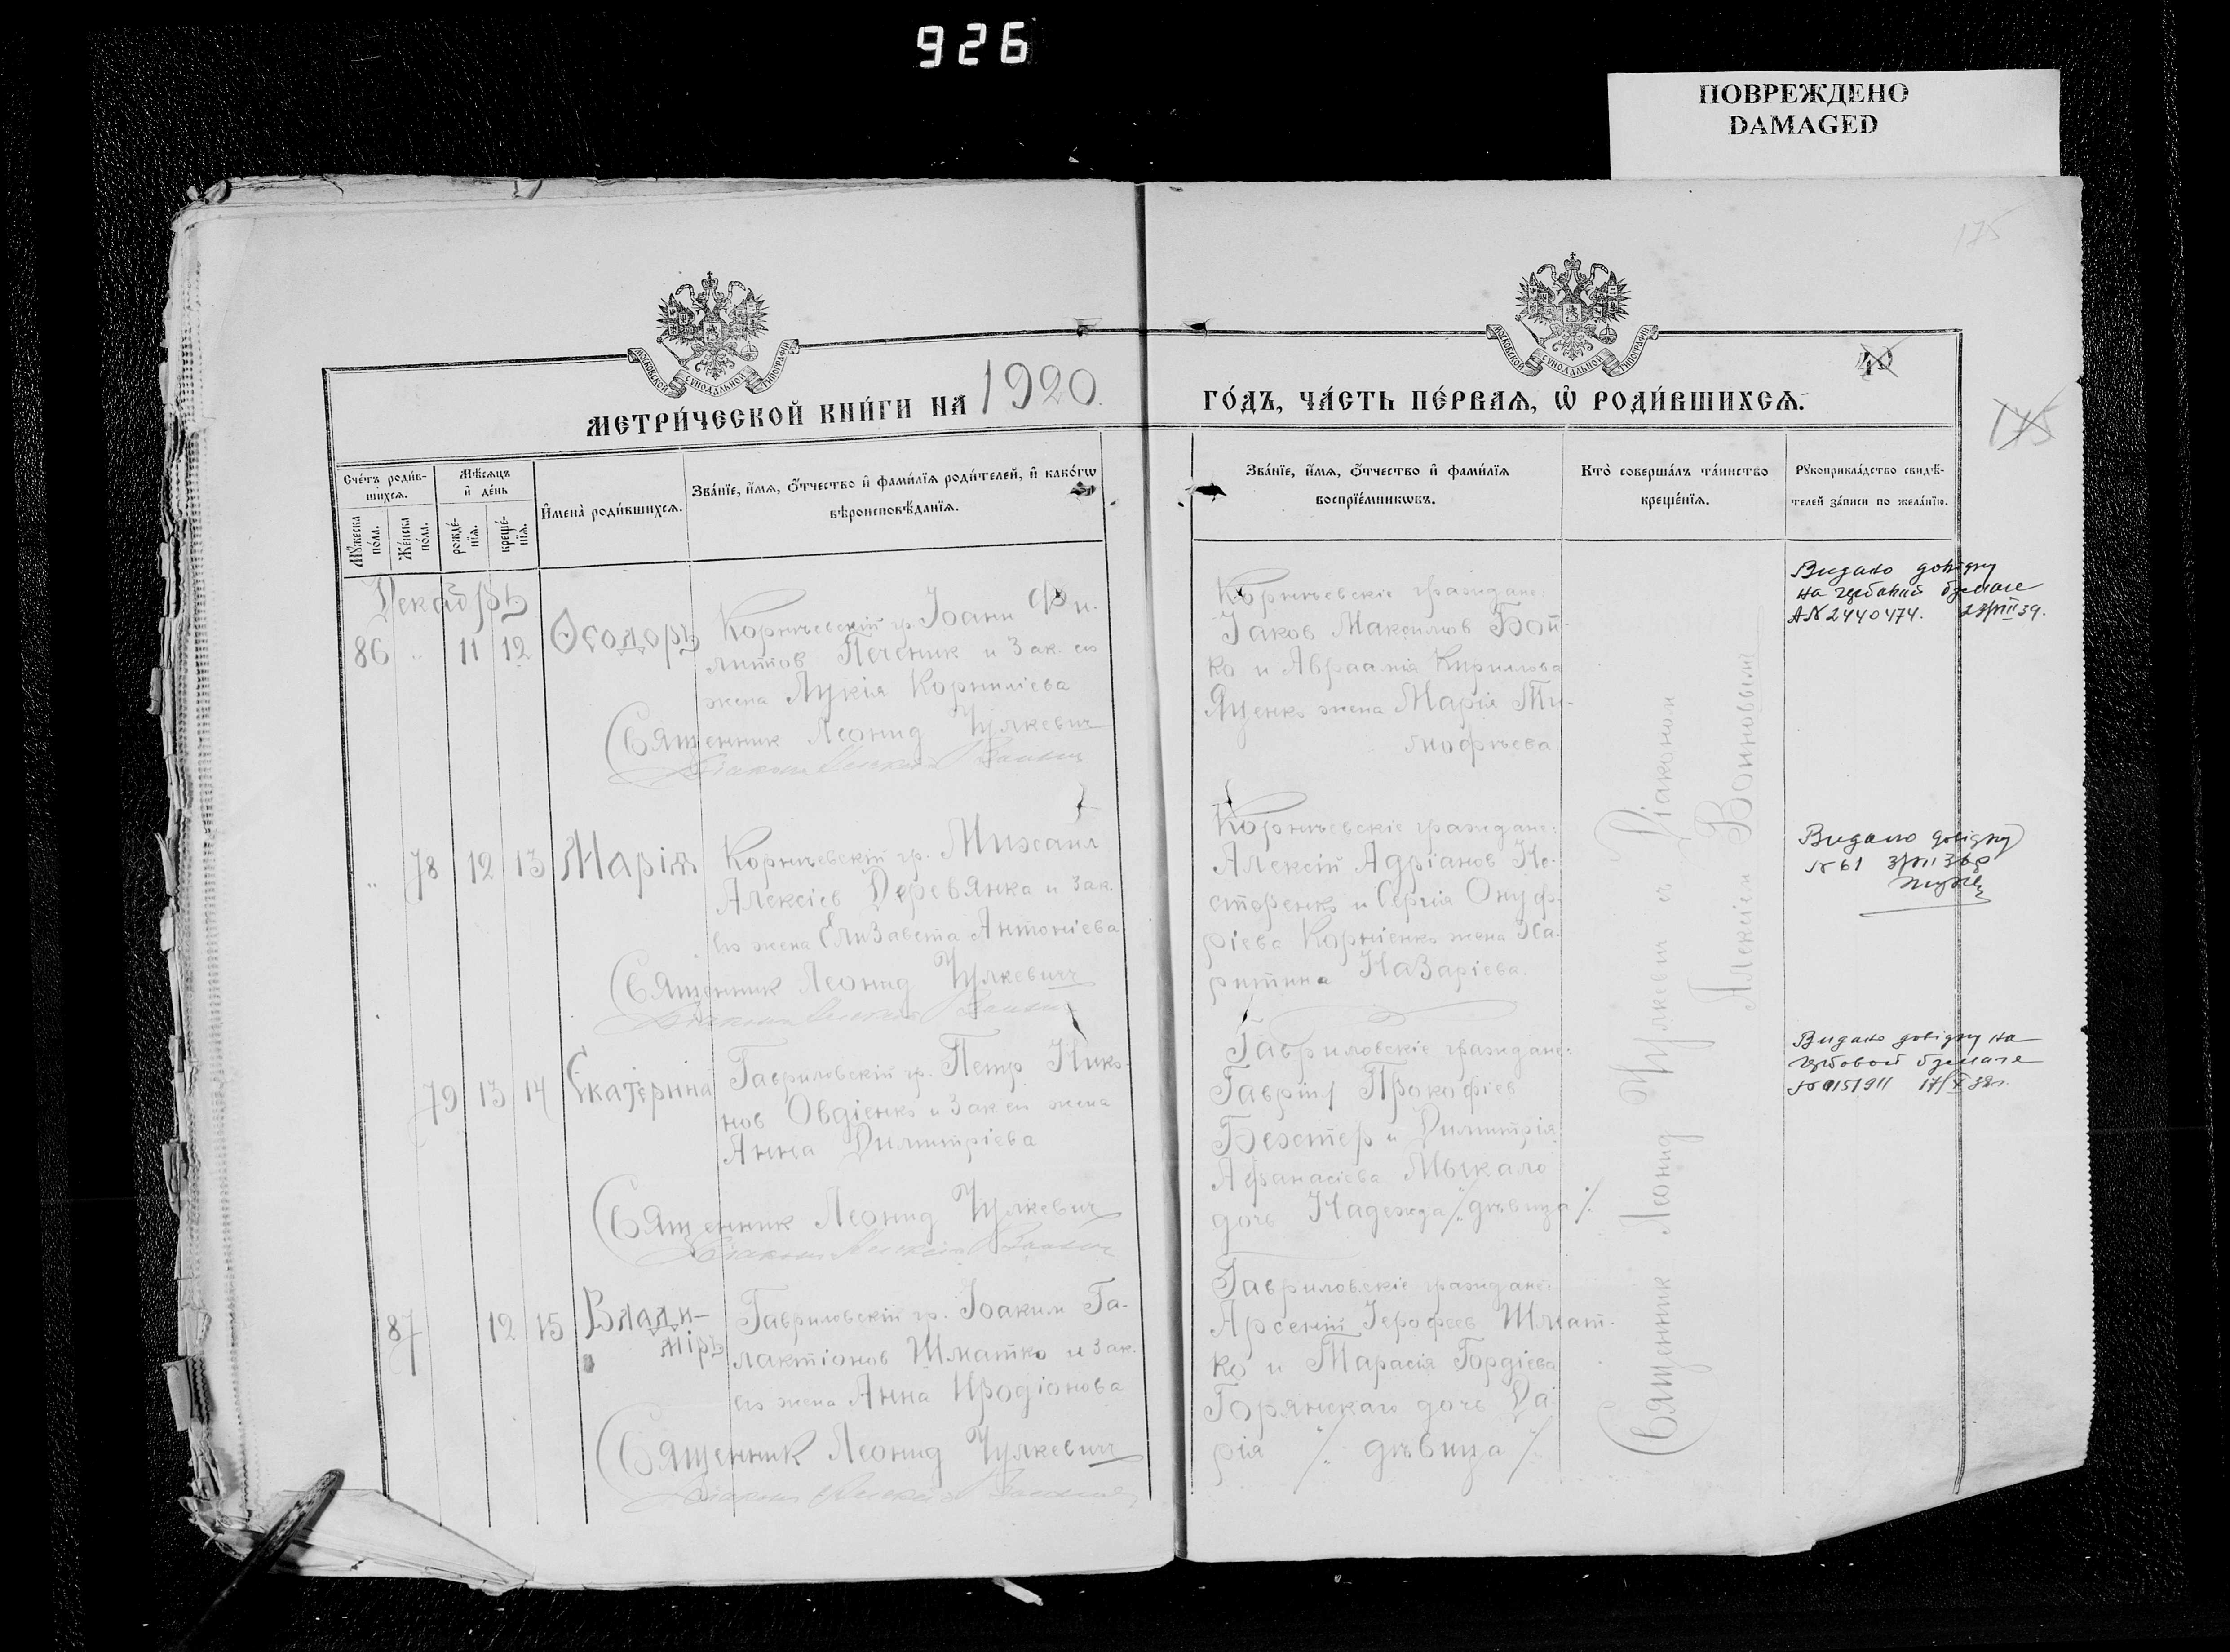 926
ПОВРЕЖДЕНО
DAMAGED
175
МОСКОВСКОЙ СѴНОДАЛЬНОЙ ТИПОГРАФІИ
МОСКОВСКОЙ СѴНОДАЛЬНОЙ ТИПОГРАФІИ
40
175
МЕТРИ́ЧЕСКОЙ КНИ́ГИ НА 1920
ГО́ДЪ, ЧА́СТЬ ПЕ́РВАѦ, Ѡ҆ РОДИ́ВШИХСѦ.
Сче́тъ роди́в-
шихсѧ.
Мꙋ́жеска по́ла.
Же́нска по́ла.
Мѣ́сѧцъ
и҆ де́нь
рожде́-
нїѧ.
креще́-
нїѧ.
И҆мена̀ роди́вшихсѧ.
Зва́нїе, и҆́мѧ, ѻ҆́тчество и҆ фами́лїѧ роди́телей, и҆ како́гѡ
вѣроисповѣ́данїѧ.
Зва́нїе, и҆́мѧ, ѻ҆́тчество и҆ фами́лїѧ
воспрїе́мникѡвъ.
Кто̀ соверша́лъ та́инство
креще́нїѧ.
Рꙋкоприкла́дство свидѣ́-
телей за́писи по жела́нїю.
Декабрь
86 " 11 12 Ѳеодоръ
Корнѣевскій гр. Іоанн Фи-
липпов Печеник и зак. его
жена Лукія Корниліева
Священник Леонид Чулкевич
Корнѣевскіе граждане:
Іаков Максимов Бой-
ко и Авраамія Кирилова
Яценко жена Марія Ти-
мофѣева
Видано довідку
на гербовій бумаге
АN 2440474.
" 78 12 13 Марія
Корнѣевскій гр. Михаил
Алексіев Деревянка и зак.
его жена Елизавета Антоніева
Священник Леонид Чулкевич
Корнѣевскіе граждане:
Алексій Адріанов Не-
сторенко и Сергія Онуф-
ріева Корніенко жена Ха-
ритина Назаріева.
Видано довідку
N 61
79 13 14 Екатерина
Гавриловскій гр. Петр Нико-
нов Овдіенко и зак. его жена
Анна Димитріева
Священник Леонид Чулкевич
Гавриловскіе граждане:
Гавріил Прокофіев
Бехтер и Димитрія
Афанасіева Мыкало
дочь Надежда /. дѣвица /.
Видано довідку на
гербовой бумаге
87 12 15 Влади-
міръ
Гавриловскій гр. Іоаким Га-
лактіонов Шматко и зак.
его жена Анна Иродіонова
Священник Леонид Чулкевич
Гавриловскіе граждане:
Арсений Іерофеев Шмат-
ко и Тарасія Гордіева
Горянскаго дочь Да-
рія /. дѣвица /.
Священник Леонид Чулкевич с Діаконом
Алексіем Воиновым